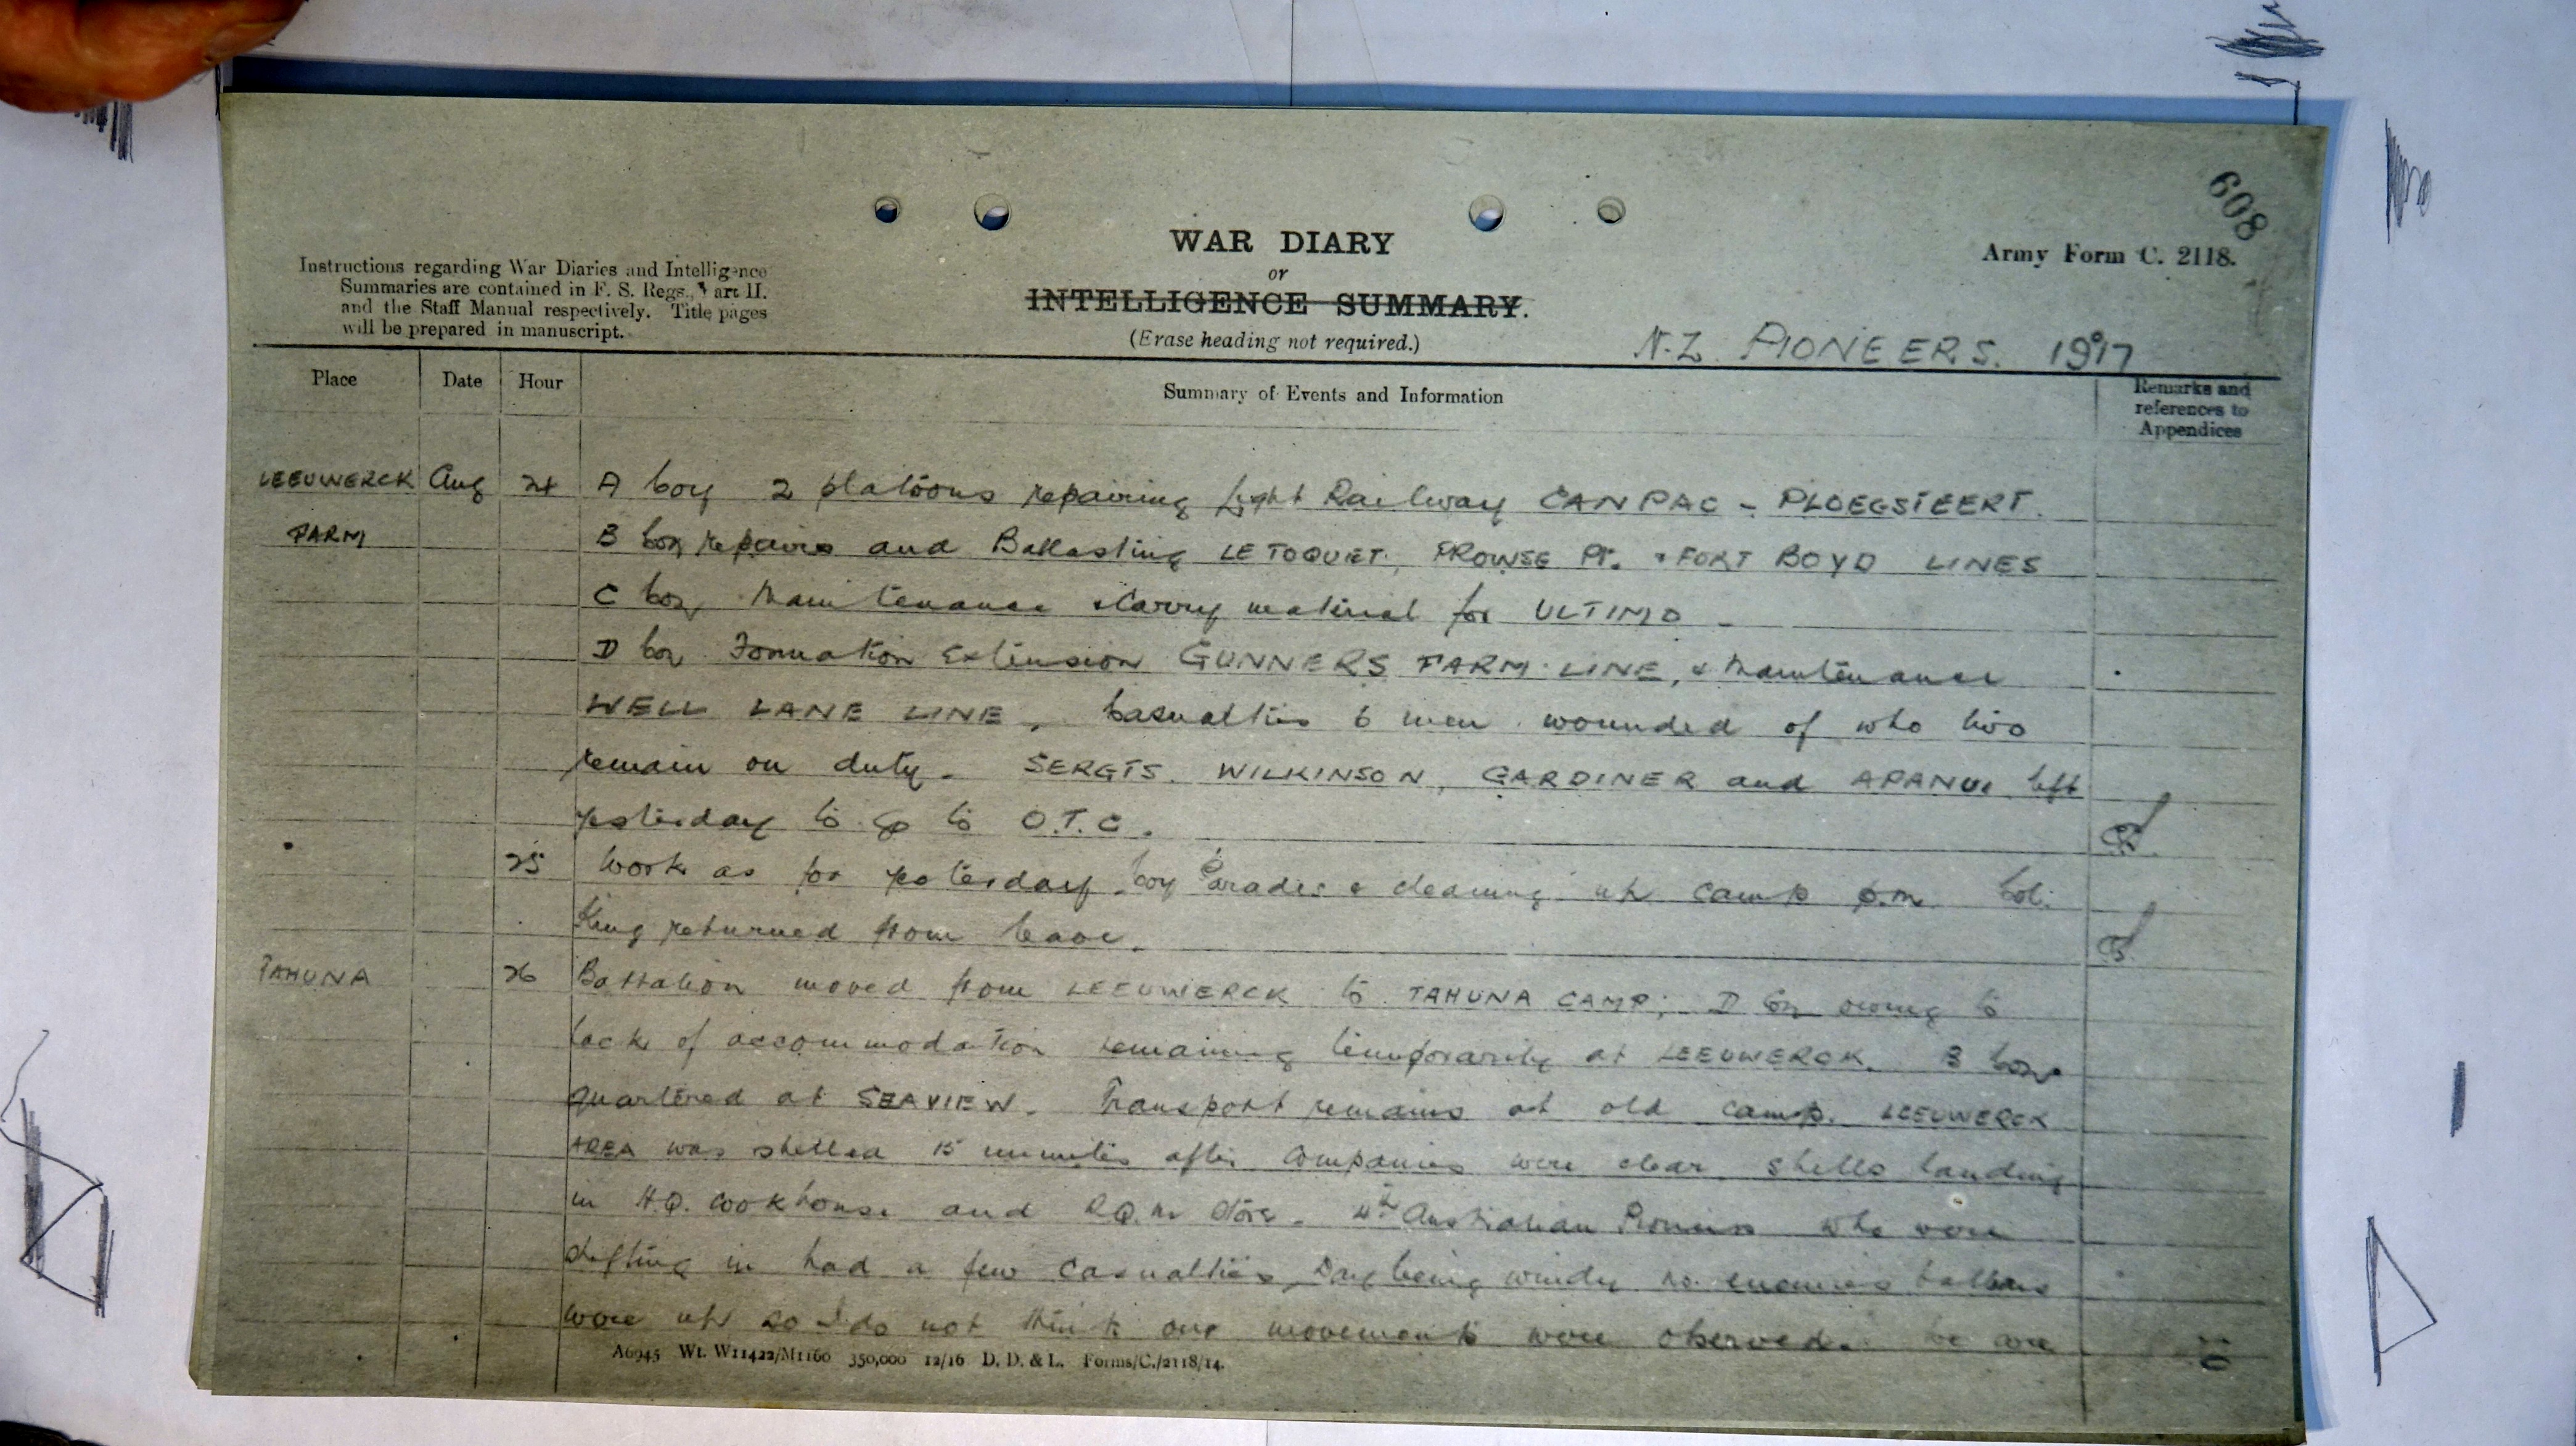 809
WAR DIARY
Army Form C. 2118.
or
INTELLIGENCE SUMMARY.
(Erase heading not required.)
Instructions regarding War Diaries and Intelligence
Summaries are contained in F. S. Regs., Part II.
and the Staff Manual respectively. Title pages
will be prepared in manuscript.
N.Z. PIONEERS. 1917
Place Date Hour Summary of Events and Information Remarks and
references to
Appendices
LEEUWERCK Aug 24 A Coy 2 platoons repairing light Railway CANPAC - PLOEGSTEERT.
FARM B Coy repairs and Ballasting LE TOQUET, PROWSE Pt. & FORT BOYD LINES
C Coy Maintenance & carry material for ULTIMO -
D Coy Formation Extension GUNNERS FARM LINE, & Maintenance
WELL LANE LINE. Casualties 6 men wounded of who two
remain on duty. SERGTS. WILKINSON, GARDINER and APANUI left
yesterday to go to O.T.C.
25 Work as for yesterday. Coy Parades & cleaning up camp p.m. Col.
King returned from leave.
TAHUNA 26 Battalion moved from LEEUWERCK to TAHUNA CAMP; D Coy owing to
lack of accommodation remaining temporarily at LEEUWERCK. B Coy
quartered at SEAVIEW. Transport remains at old camp. LEEUWERCK
AREA was shelled 15 minutes after Companies were clear shells landing
in H.Q. cookhouse and R.Q.M. Store. 4th Australian Pioneers who were
shifting in had a few casualties. Day being windy no enemies balloons
were up so I do not think our movements were observed. We are
A6945 Wt. W11422/M1160 350,000 12/16 D. D. & L. Forms/C./2118/14.